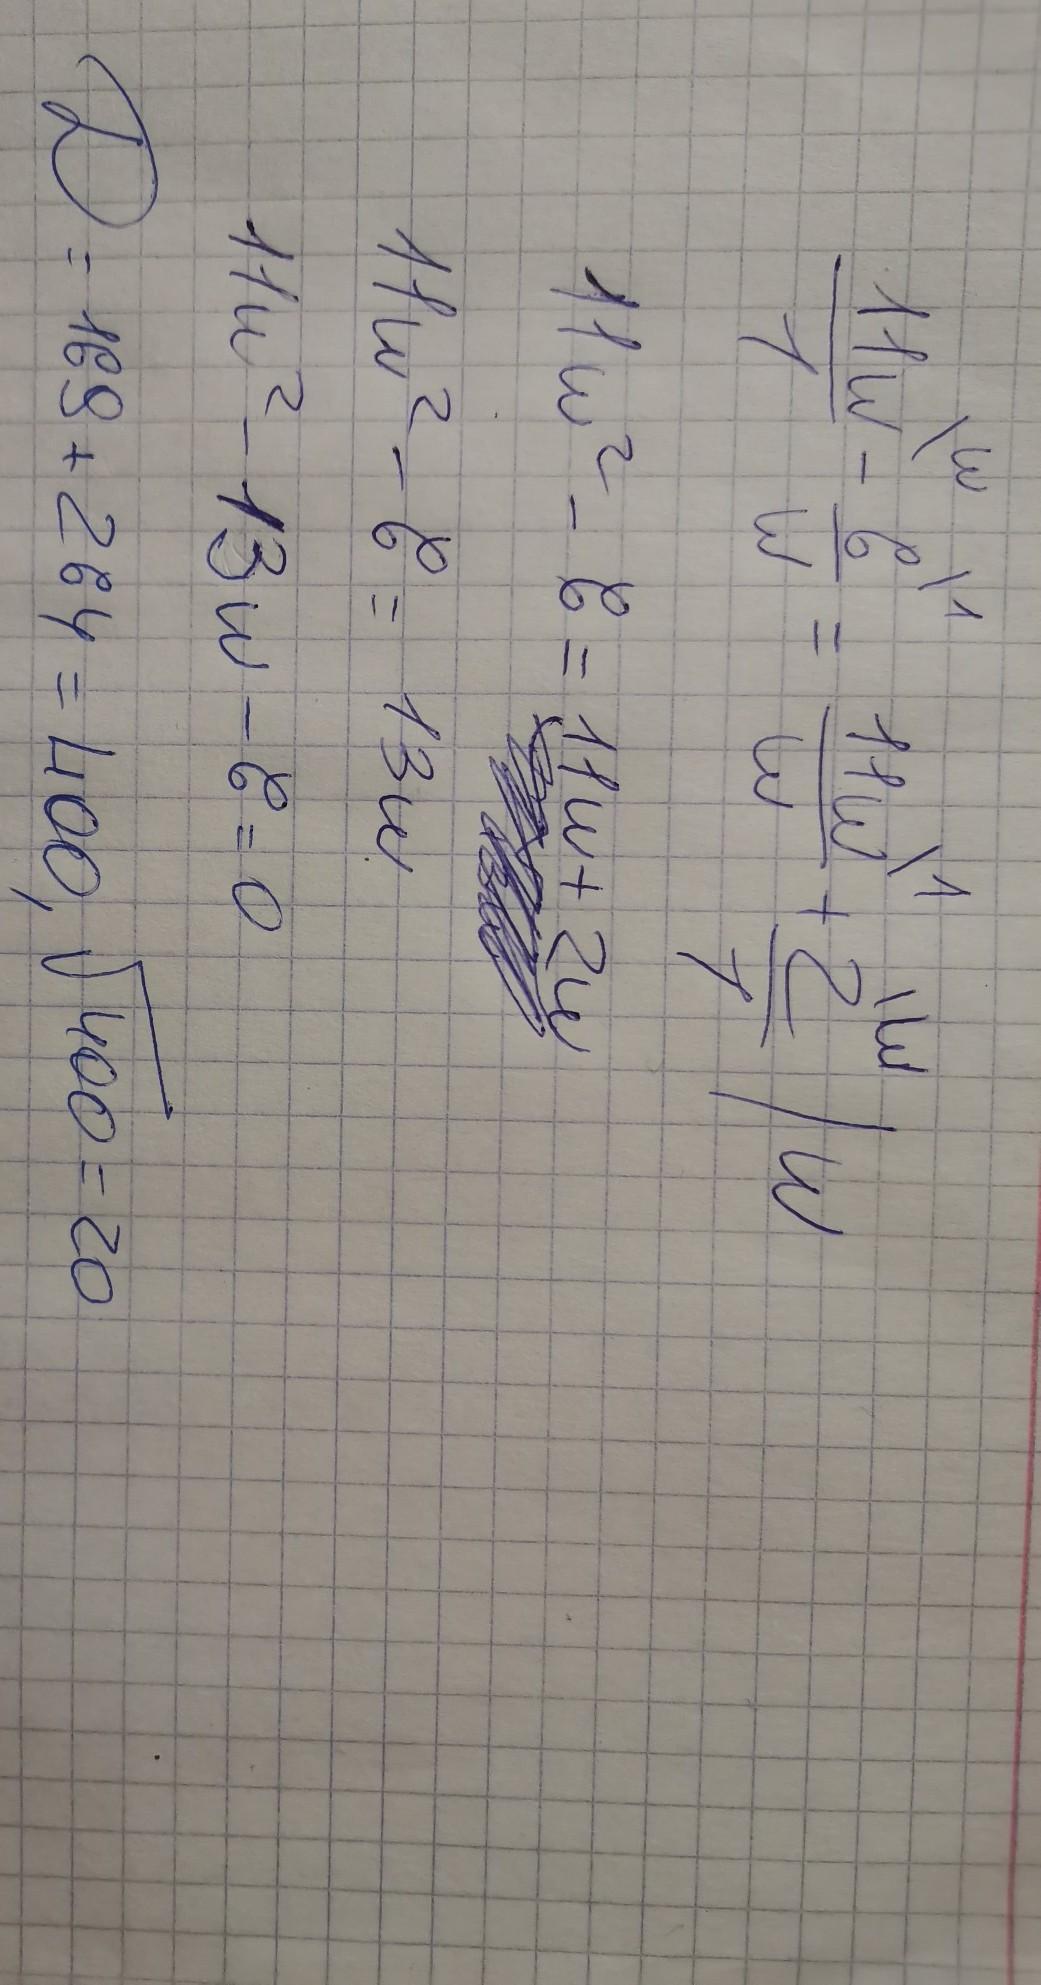 11w\w/1 - 6\1/w = 11w\1/w + 2\w/1 | w
11w² - 6 = 11w + 2w
11w² - 6 = 13w
11w² - 13w - 6 = 0
D = 169 + 264 = 400, √400 = 20